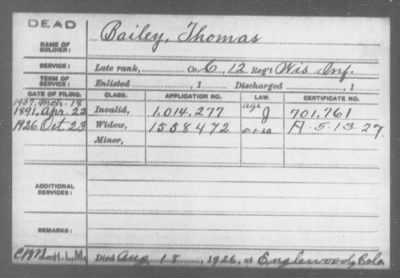 DEAD
NAME OF SOLDIER: Bailey, Thomas
SERVICE: Late rank, Co. C, 12 Reg't Wis. Inf.
TERM OF SERVICE: Enlisted , 1 Discharged , 1
DATE OF FILING. CLASS. APPLICATION NO. LAW. CERTIFICATE NO.
1907, Mch. 18
1891, Apr. 22 Invalid, 1.014.277 age g 701,761
1926 Oct 23 Widow, 1558472 5-1-20 A-5-13-27.
Minor,
ADDITIONAL SERVICES:
REMARKS:
H.L.M. Died Aug 18, 1926, at Englewood, Colo